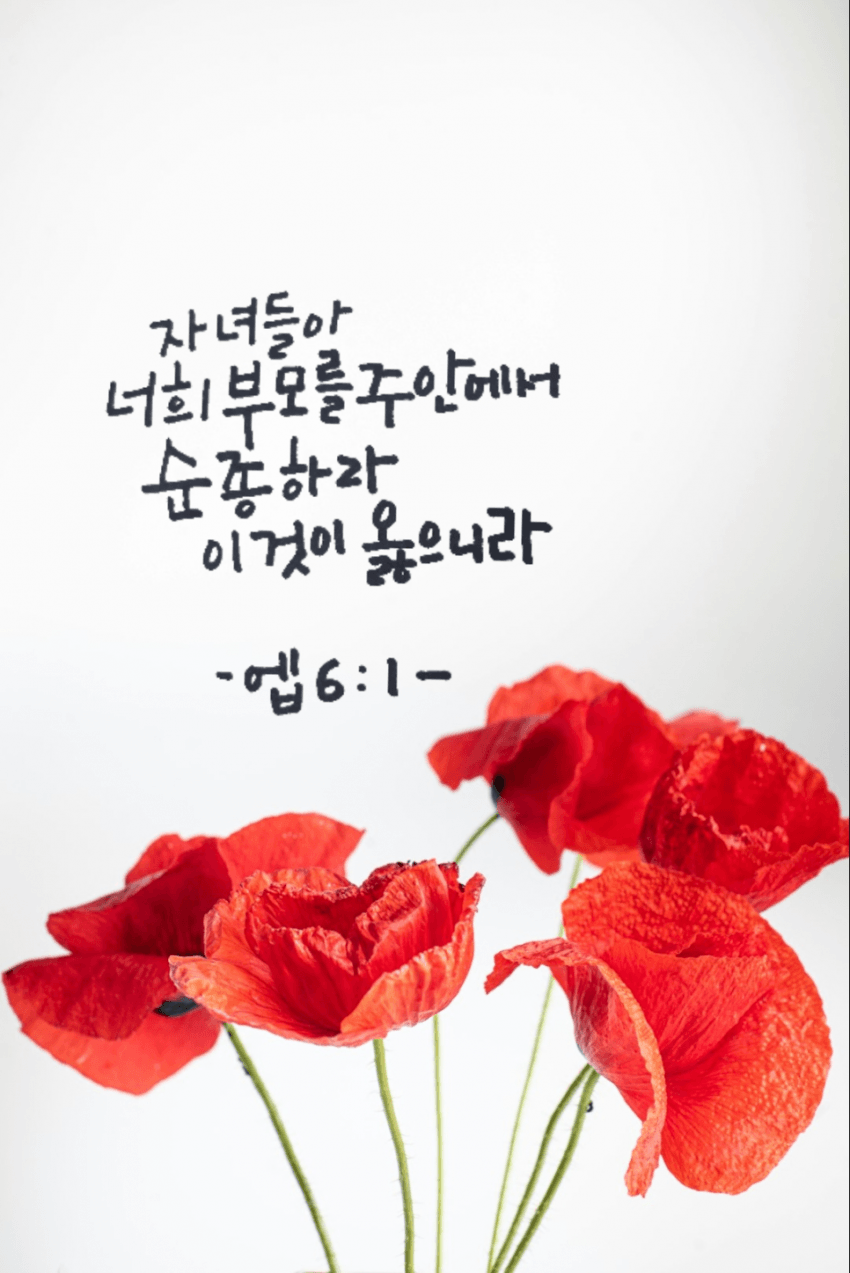 자녀들아
너희 부모를 주안에서
순종하라
이것이 옳으니라
-엡 6:1-